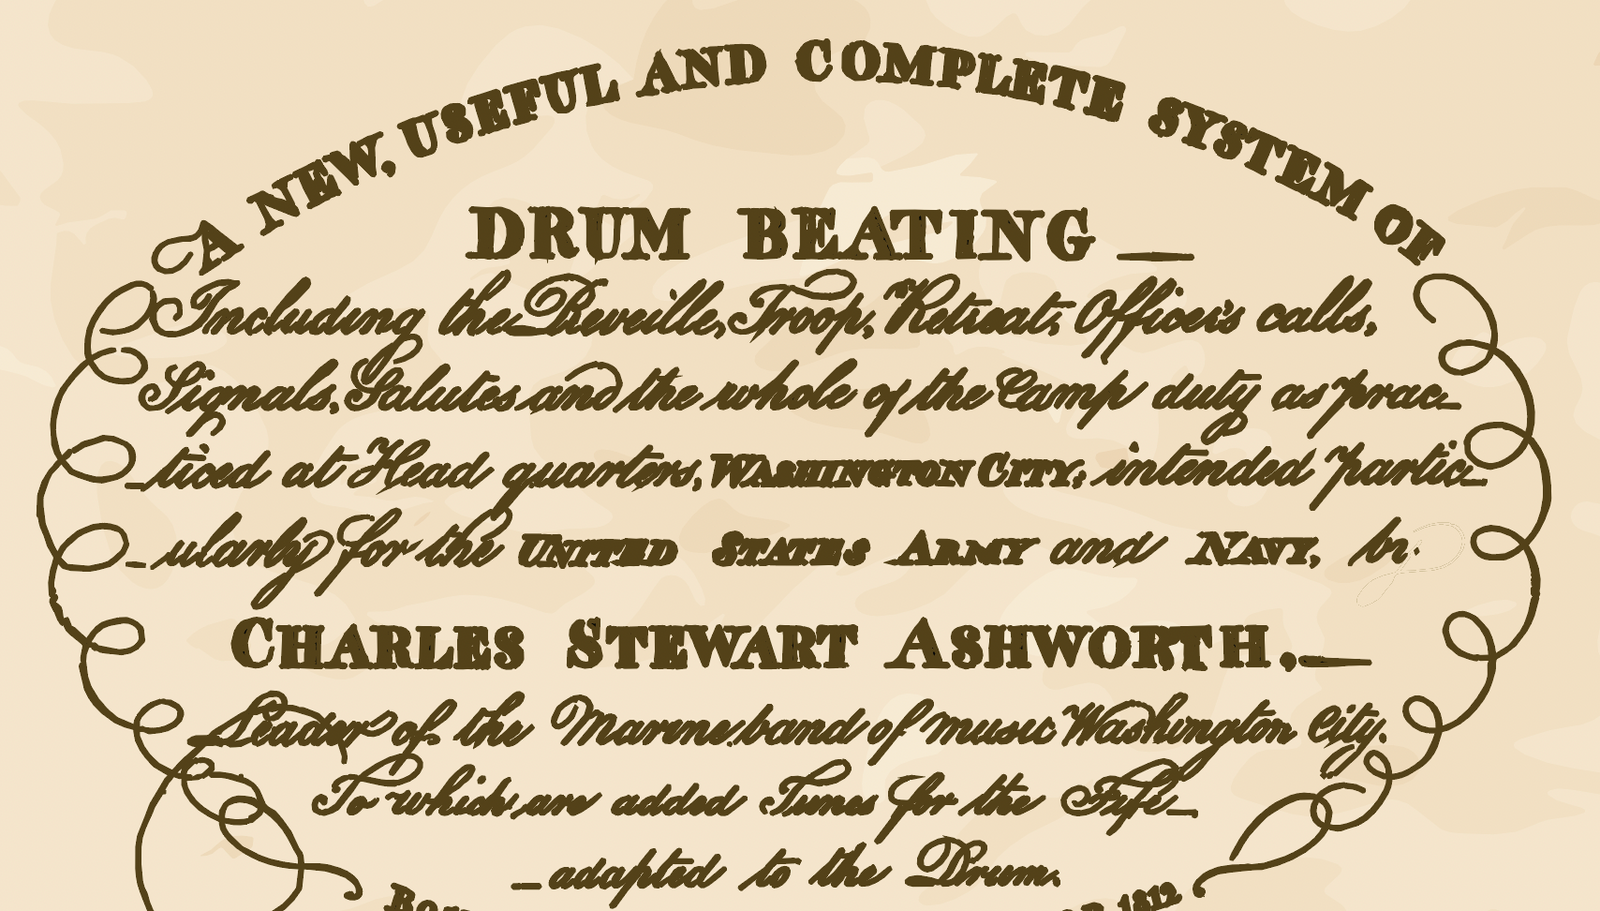 A NEW, USEFUL AND COMPLETE SYSTEM OF
DRUM BEATING _
Including the Reveille, Troop, Retreat, Officer's calls,
Signals, Salutes and the whole of the Camp duty as prac_
_ticed at Head quarters, WASHINGTON CITY, intended partic_
_ularly for the UNITED STATES ARMY and NAVY, by.
CHARLES STEWART ASHWORTH,_
Leader of the Marine band of music Washington City.
To which are added Tunes for the Fife_
_adapted to the Drum.
1812